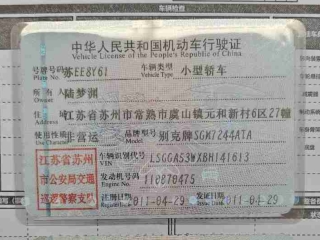 车辆检查
中华人民共和国机动车行驶证
Vehicle License of the People's Republic of China
号牌号码 苏EE8Y61 车辆类型 小型轿车
Plate No. Vehicle Type
所有人 陆梦渊
Owner
住址 江苏省苏州市常熟市虞山镇元和新村6区27幢
使用性质 非营运 品牌型号 别克牌SGM7244ATA
江苏省苏州
市公安局交通
巡逻警察支队
车辆识别代号 LSGGA53WXBH141613
VIN
发动机号码 110870475
Engine No.
注册日期 2011-04-29 发证日期 2011-04-29